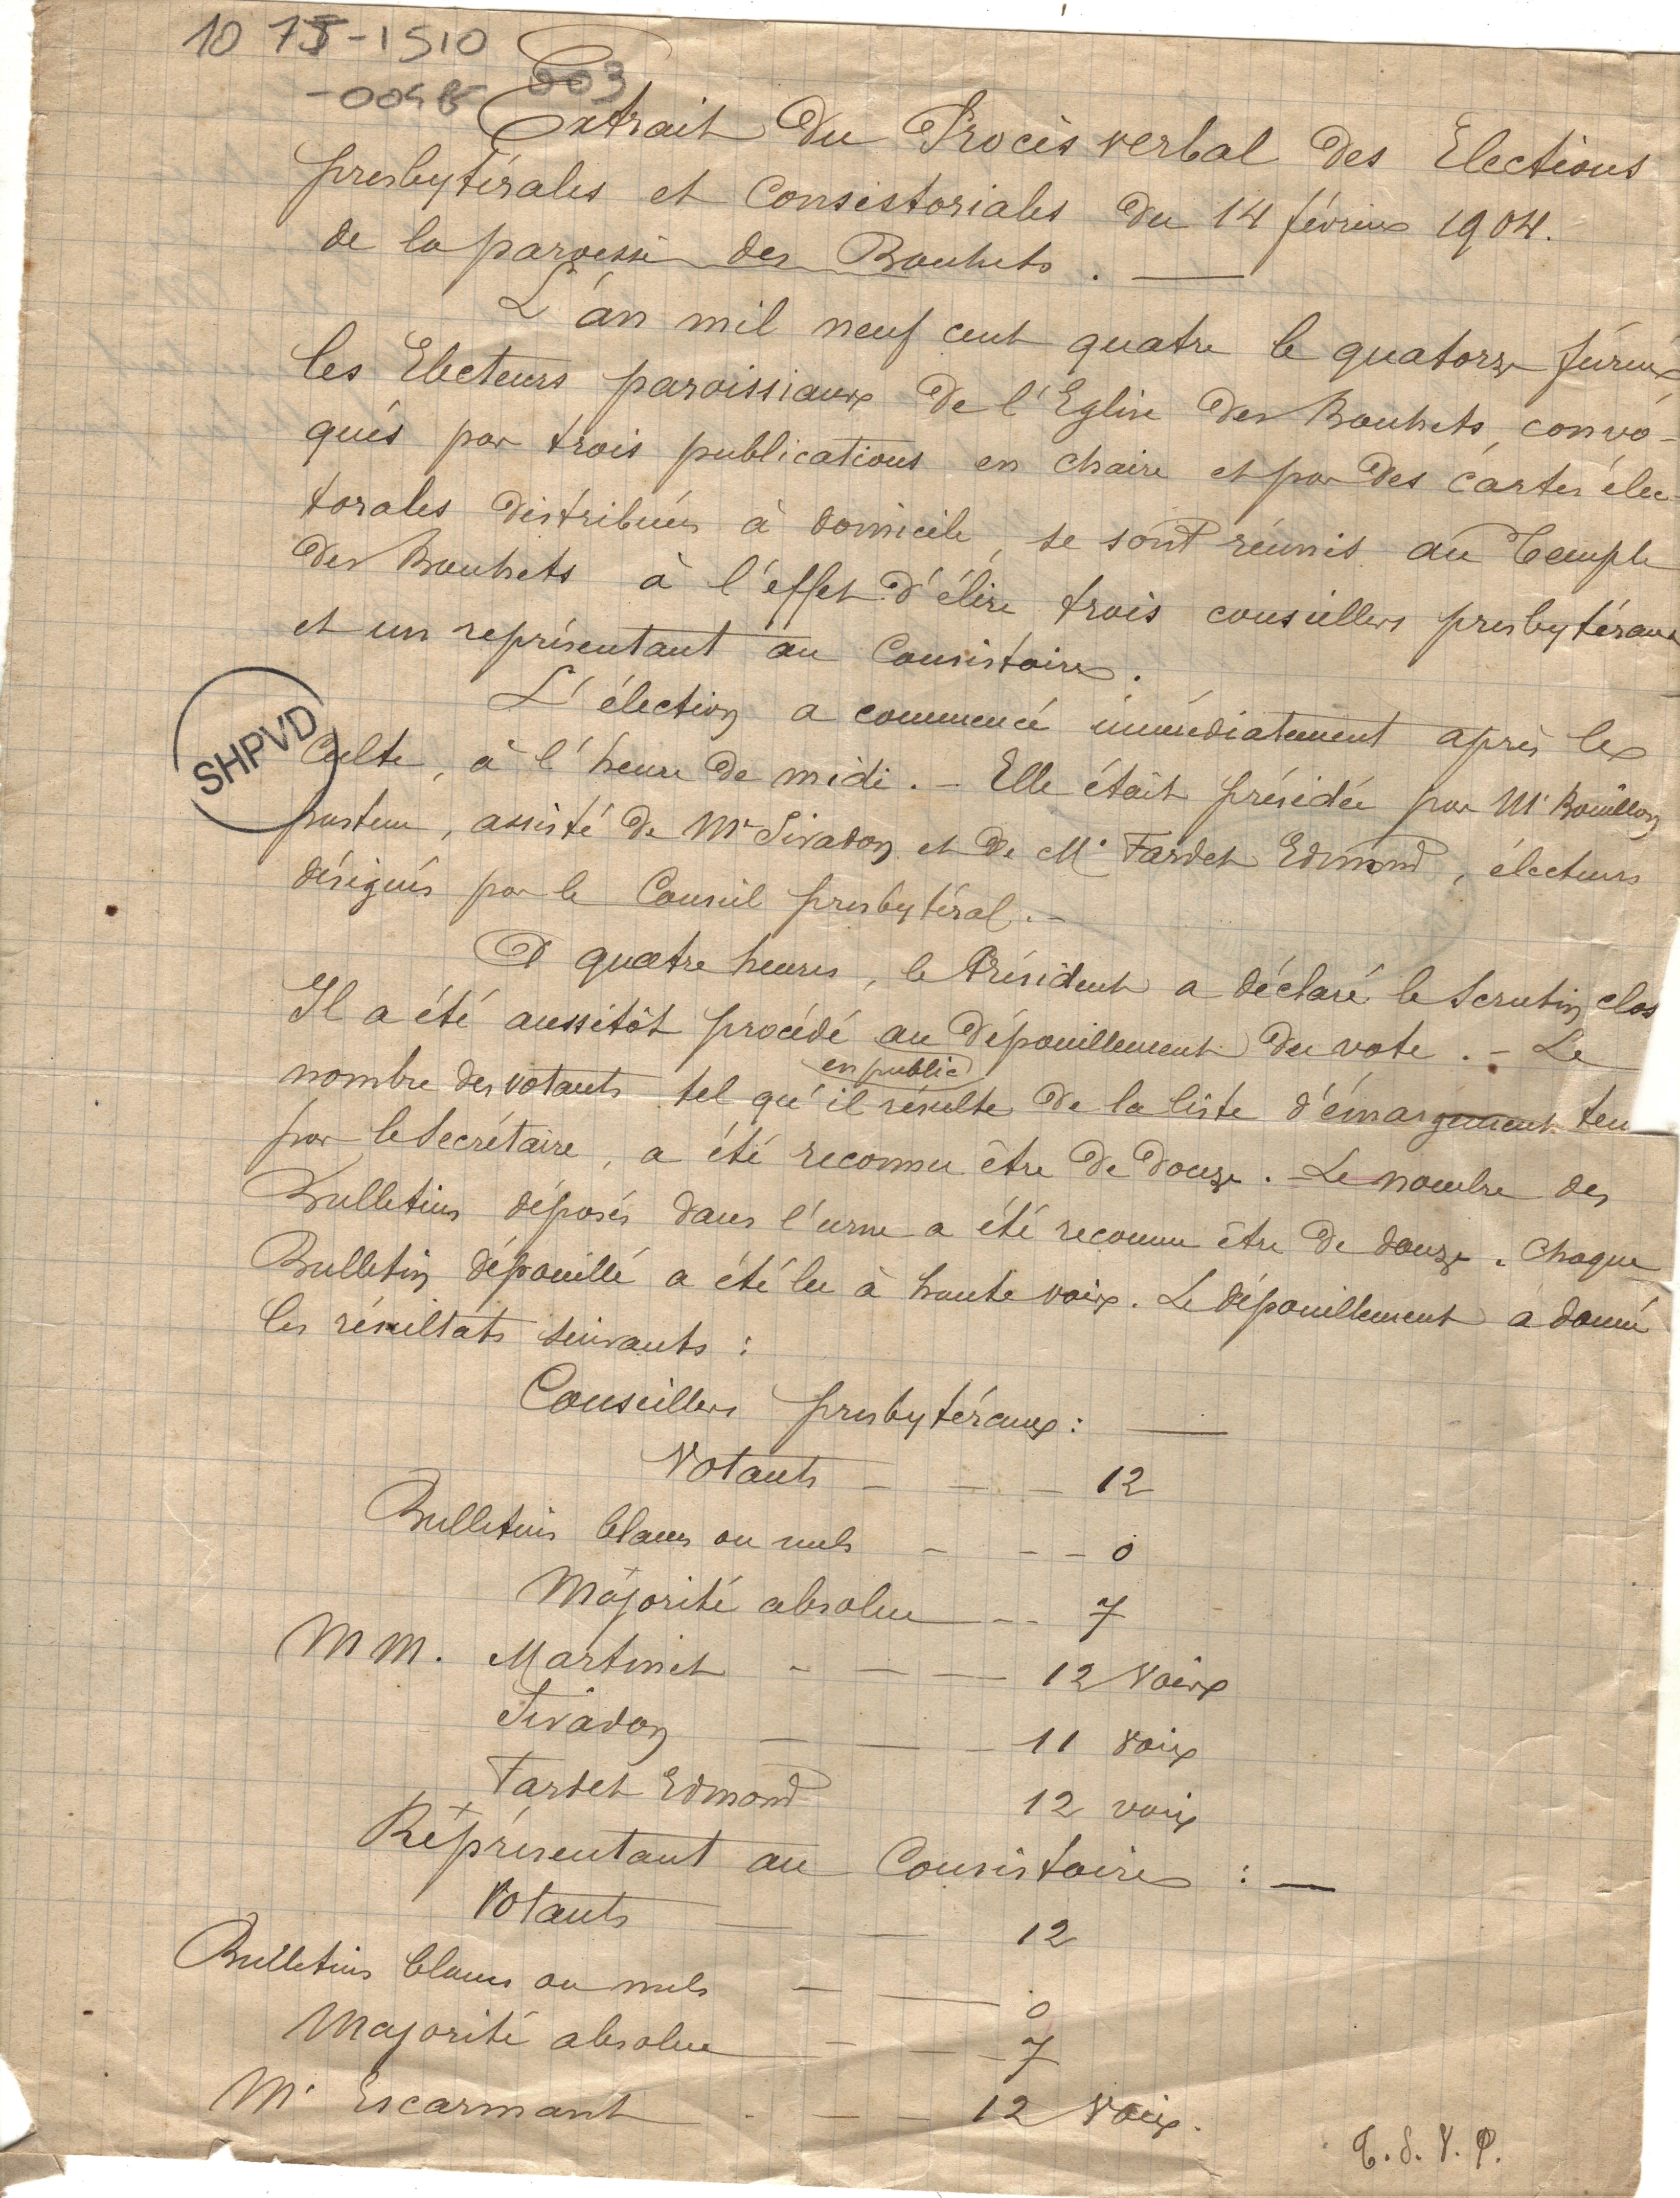 10 75-1510
-004B 003
Extrait du Procès verbal des Elections
presbytérales et Consistoriales du 14 février 1904.
de la paroisse des Bouhets.
L'an mil neuf cent quatre le quatorze février
les Electeurs paroissiaux de l'Eglise des Bouhets, convo-
qués par trois publications en chaire et par des cartes élec-
torales distribuées à domicile, se sont réunis au Temple
des Bouhets à l'effet d'élire trois conseillers presbytéraux
et un représentant au Consistoire.
L'élection a commencé immédiatement après le
SHPVD
Culte, à l'heure de midi. - Elle était présidée par Mr Bouillon
pasteur, assisté de Mr Sivadon et de Mr Fardet Edmond, électeurs
désignés par le Conseil presbytéral. -
A quatre heures, le Président a déclaré le Scrutin clos
Il a été aussitôt procédé au dépouillement du vote. - Le
en public
nombre des votants tel qu'il résulte de la liste d'émargement ten
par le Secrétaire, a été reconnu être de douze. - Le nombre des
Bulletins déposés dans l'urne a été reconnu être de douze. Chaque
Bulletin dépouillé a été lu à haute voix. Le dépouillement a donné
les résultats suivants :
Conseillers presbytéraux :
Votants - - - 12
Bulletins blancs ou nuls - - - 0
Majorité absolue - - 7
MM. Martinet - - - 12 voix
Sivadon - - - 11 voix
Fardet Edmond 12 voix
Réprésentant au Consistoire : -
Votants - - 12
Bulletins blancs ou nuls - - 0
Majorité absolue - - - 7
Mr Escarmant - - - 12 voix.
T. S. V. P.